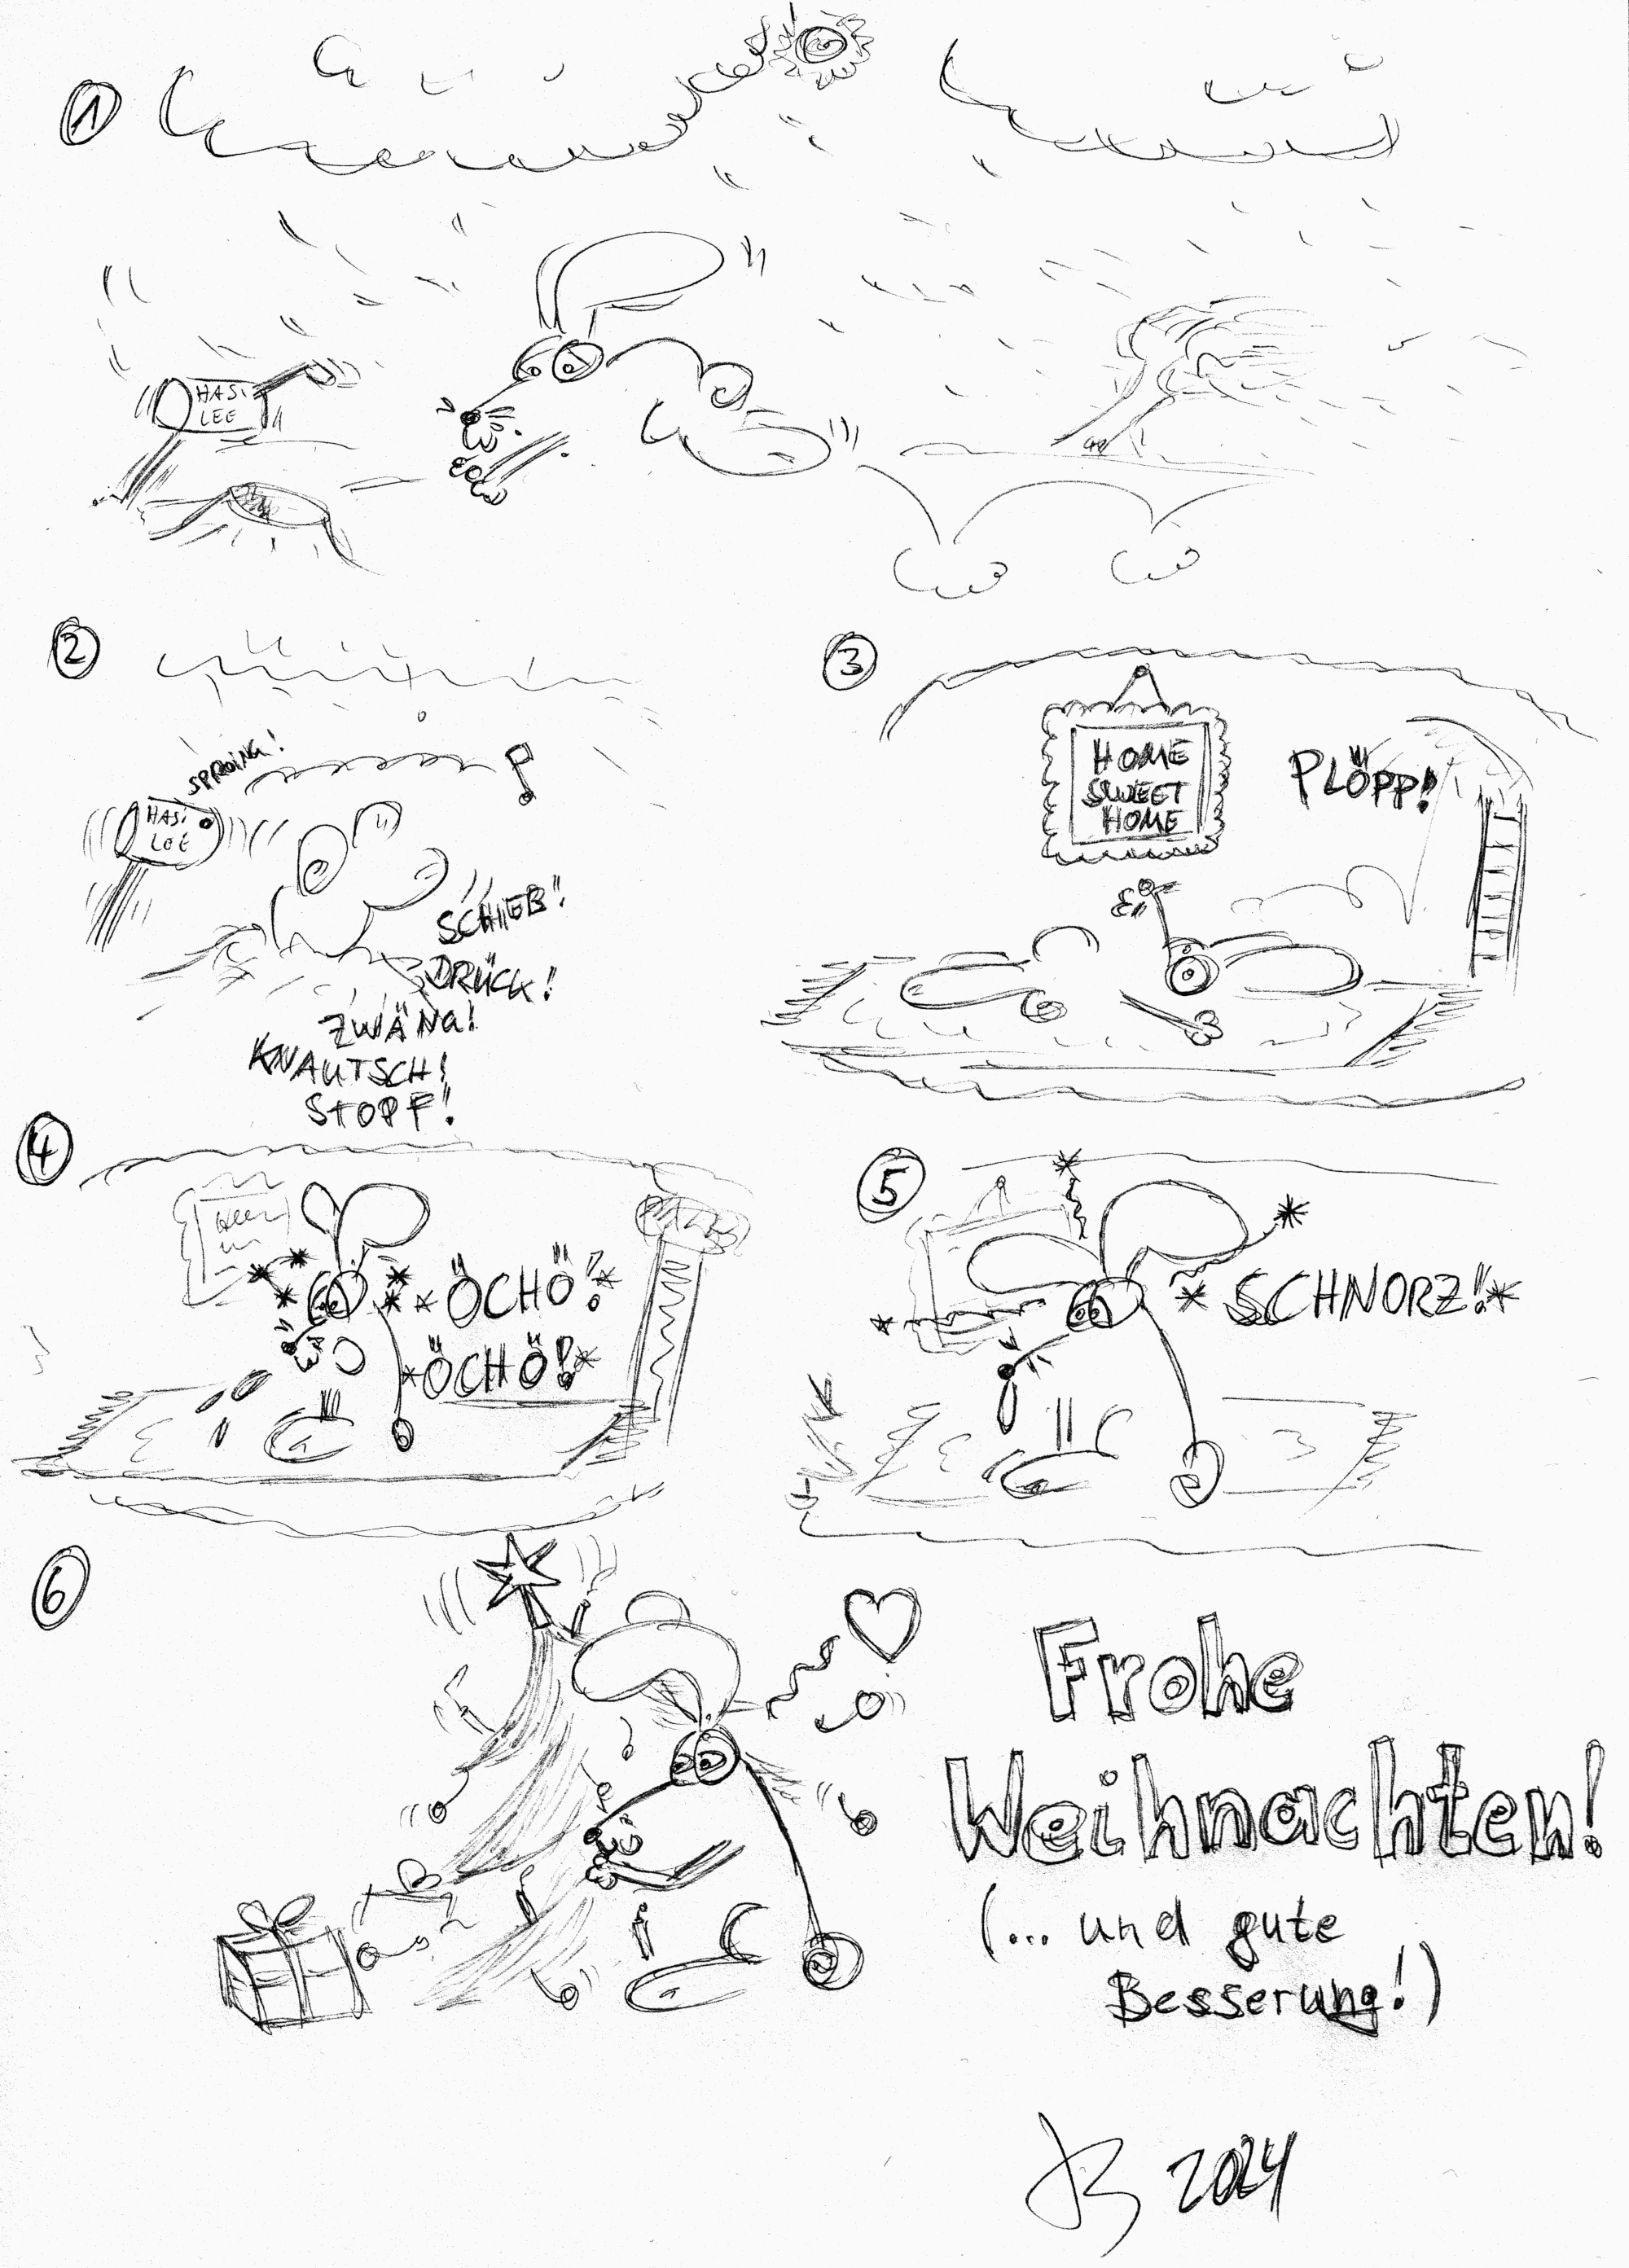 1
HASI
LEE
2
SPROING!
HASI
LEE
SCHIEB!
DRÜCK!
ZWÄNG!
KNAUTSCH!
STOPF!
3
HOME
SWEET
HOME
PLÖPP!
4
*ÖCHÖ!*
*ÖCHÖ!*
5
*SCHNORZ!*
6
Frohe
Weihnachten!
(... und gute
Besserung!)
2024